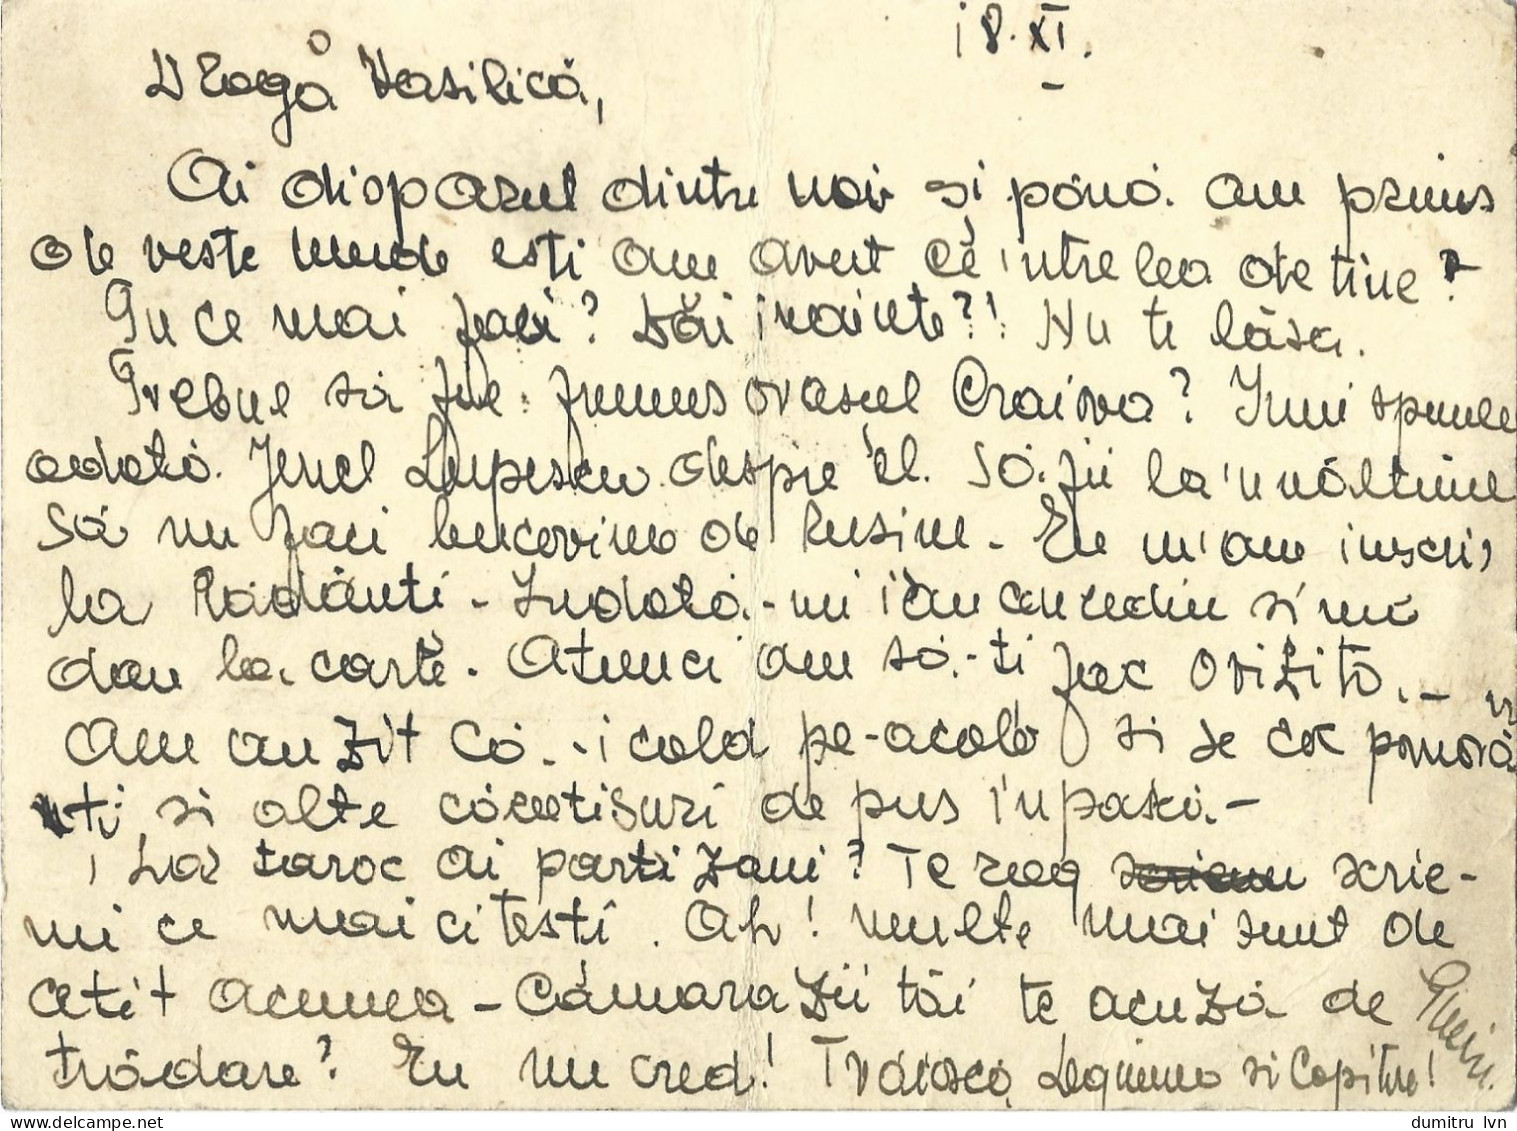 18. XI.
Dragă Vasilică,
Ai dispărut dintre noi si pănă am prins
de veste unde esti am avut ce'ntrelea de tine?
In ce mai faci? Dăi inainte?! Nu te lăsa.
Trebue să fie frumos orasul Craiova? Imi spunea
odată Jenel Lupescu despre el. Să fii la'nnăltime
Să nu faci bucovina de rusine. Eu m'am inscris
la Rădăuti - Indată-mi iau carnedin si mă
dau la carte. Atunci am să-ti fac o vizită. -
Am auzit că-i cald pe-acolo si se coc pomară
nti si alte căcatisuri de pus in paskă. -
La taroc ai partizani? Te rog scrie-
mi ce mai citesti. Ah! multe mai sunt de
cetit acumea - Cămarazii tăi te acuză de
trădare? Eu nu cred! Trăiască Legiunea si Capitanu!
dumitru_lvn